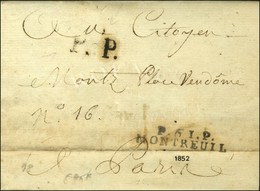 Au Citoyen
P.P.
Montz Place Vendôme
N° 16.
P.61.P.
MONTREUIL
1852
à Paris